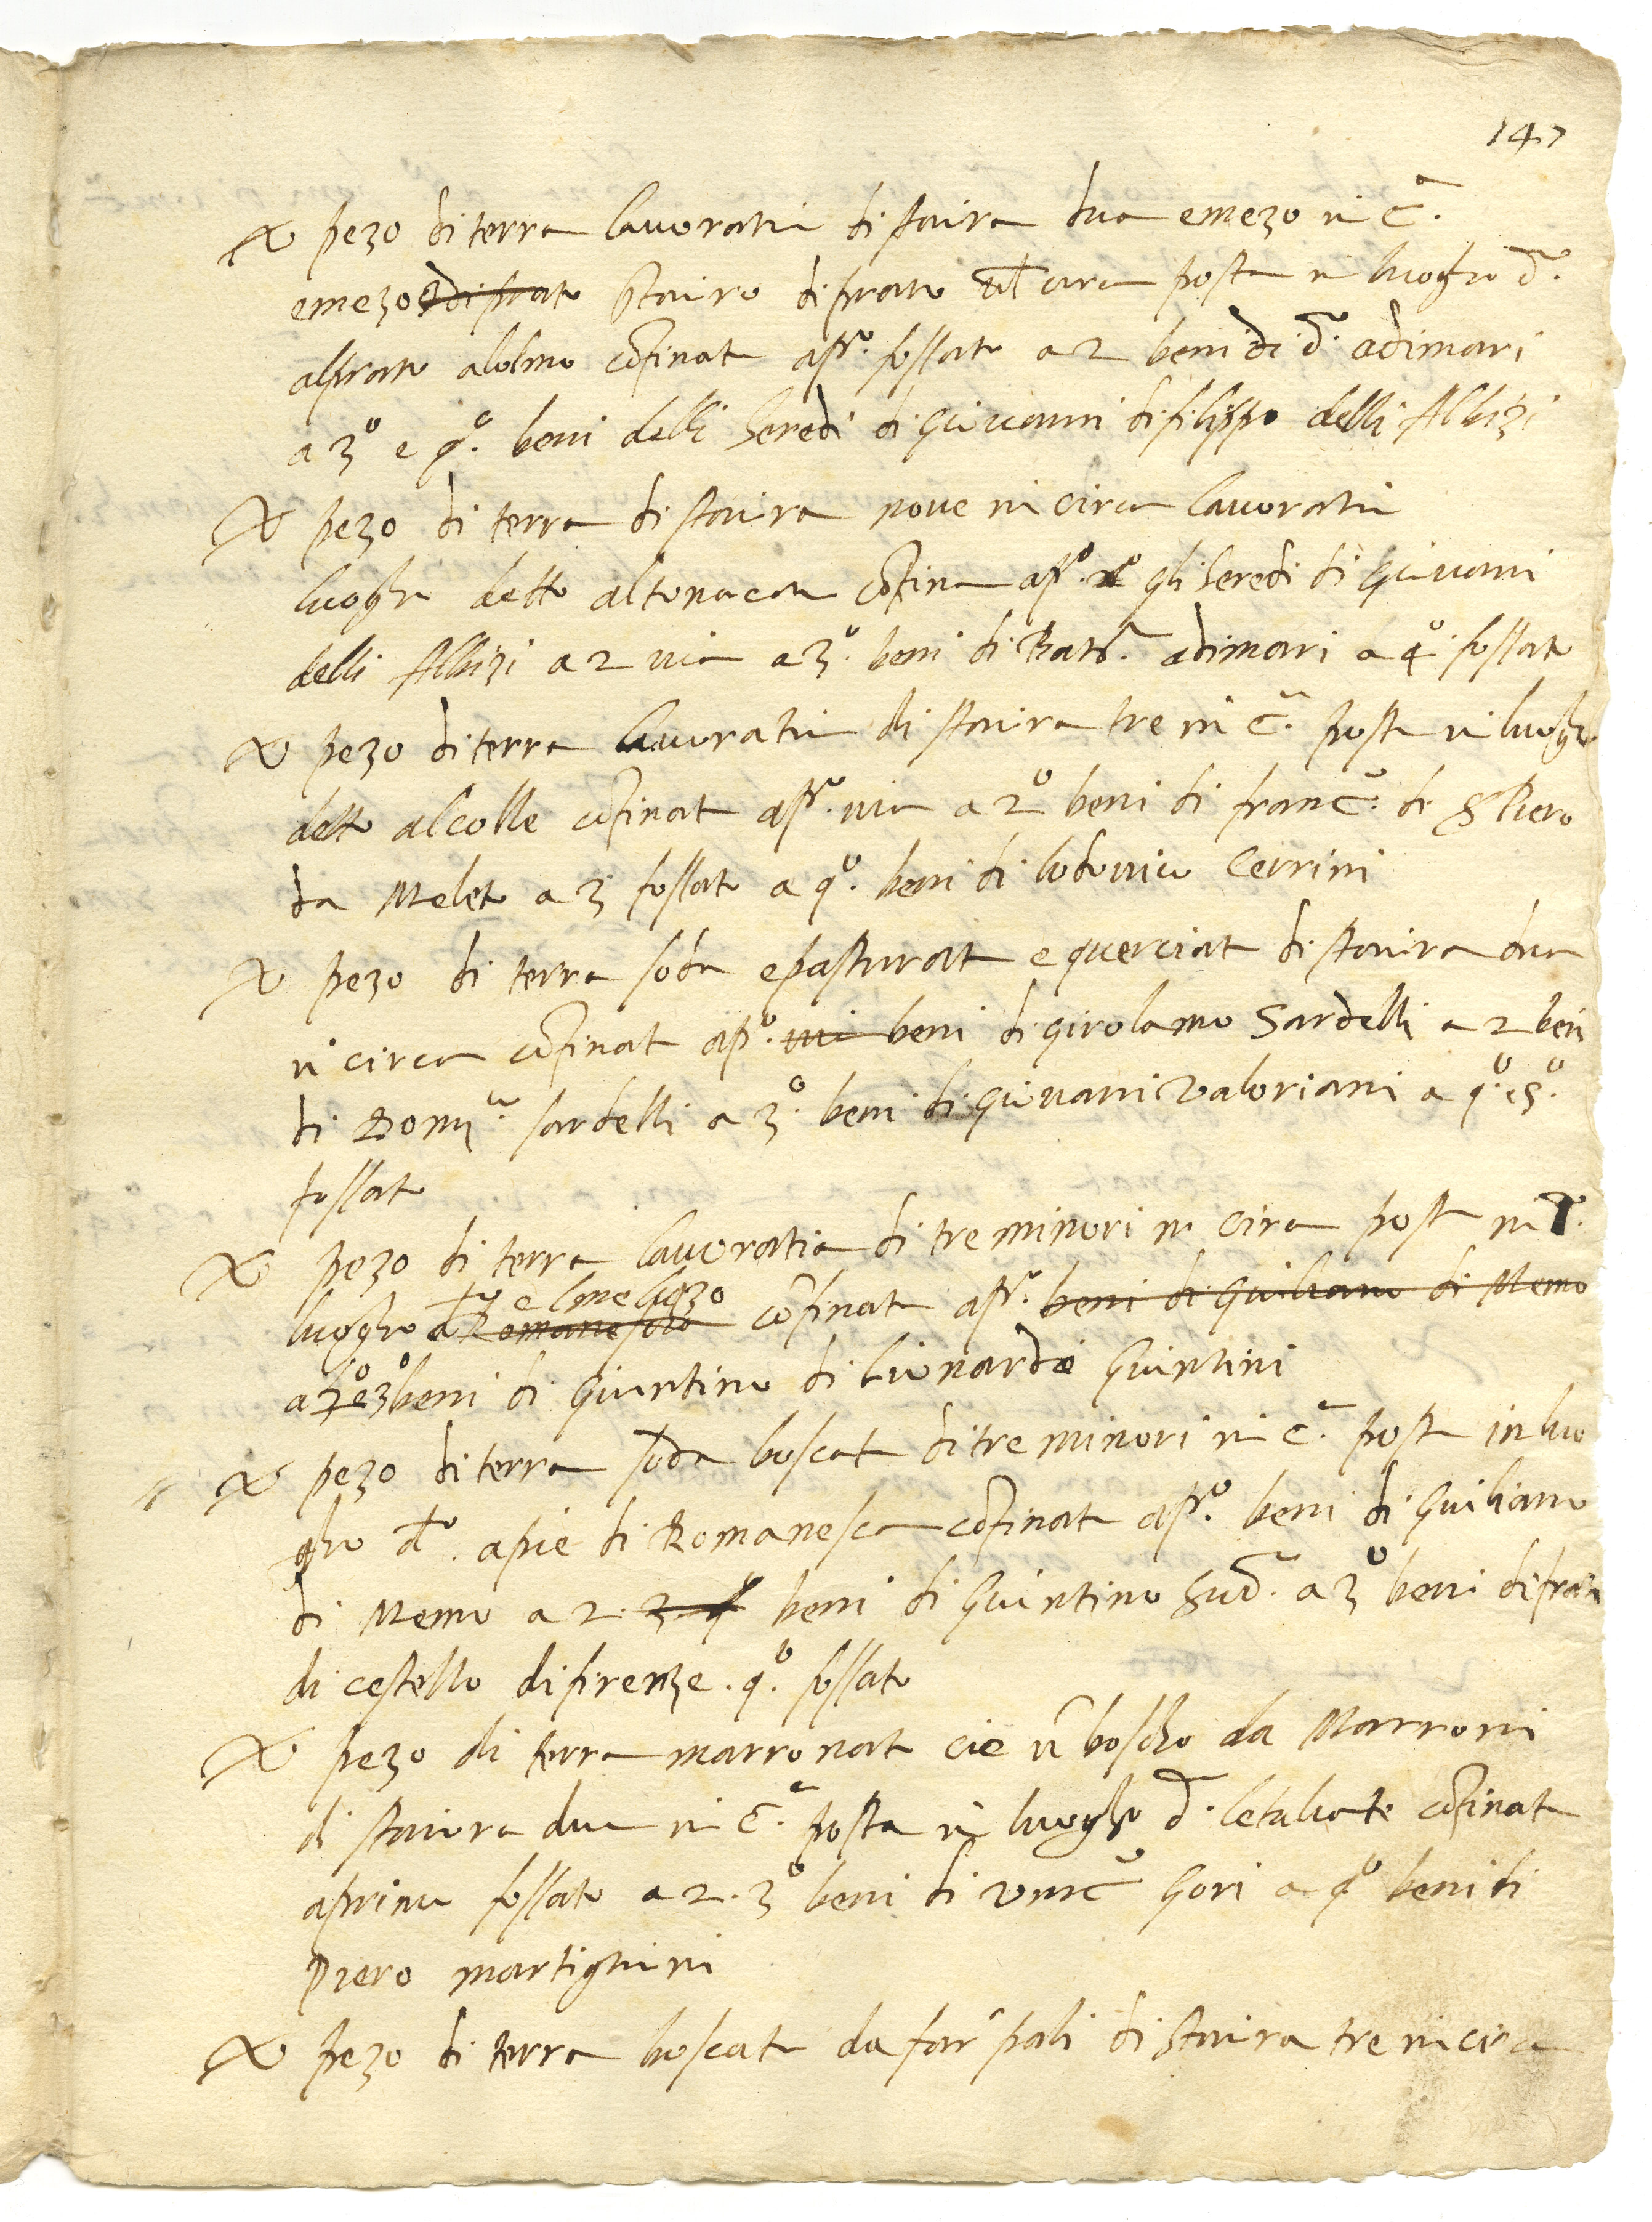 147
pezo di terra lavoratia di staiora dua emezo in c.ª
emezo di prato staioro di prato circa posta in luogho d.º
alprato alolmo cōfinata a pº. fossato a 2 beni di d.º adimari
a 3º e qº. beni delli heredi di giovanni di filippo delli Albizi
pezo di terra di staiora nove in circa lavoratia
luogho detto altonacca cōfina a pº. gli heredi di giovani
delli Albizi a 2 via a 3º. beni di Bat.ª adimari a 4º fossato
pezo di terra lavoratia di staiora tre in c.ª posta in luogho
detto alcolle cōfinata a pº. via a 2º beni di franc.º di S Piero
da Meleto a 3 fossato a qº. beni di lodovico Cerrini
pezo di terra soda e pasturata e querciata di staiora dua
in circa cōfinata a pº. beni di girolamo Sardelli a 2 beni
di Domc.º sardelli a 3º. beni di giovani valoriani a qº. e 5º.
fossato
pezo di terra lavoratia di tre minori in circa posta in
luogho d.º elmeluzo Romanesco cōfinata a pº. beni di guiliano di Memo
a 2º e 3º beni di guintino di lionardo guintini
pezo di terra soda boscata di tre minori in c.ª posta in luo
gho d.º apie di Romanesca cōfinata a pº. beni di guiliano
di Memo a 2. 3 q beni di guintino sud.º a 3º beni di frati
di cestello di firenze. qº. fossato
pezo di terra marronata cie ū boscho da Marroni
di staiora dua in c.ª posta in luogho d.º confinata
a primo fossato a 2. 3º beni di vinc.º gori a qº beni di
Piero martignini
pezo di terra boscata da far pali di staiora tre in circa